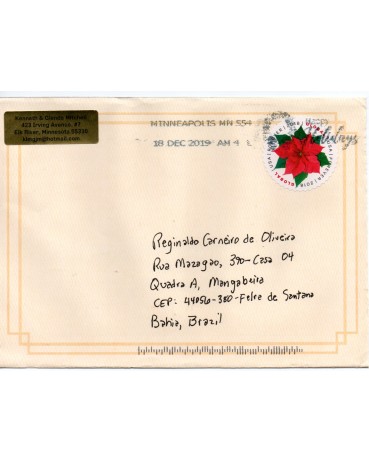 Kenneth & Glenda Mitchell
423 Irving Avenue, #1
Elk River, Minnesota 55330
MINNEAPOLIS MN 554
18 DEC 2019 AM 4 L
Happy
Holidays
GLOBAL
USA
Reginaldo Carneiro de Oliveira
Rua Mazagao, 390-Casa 04
Quadra A, Mangabeira
CEP: 44056-300-Feire de Santana
Bahia, Brazil